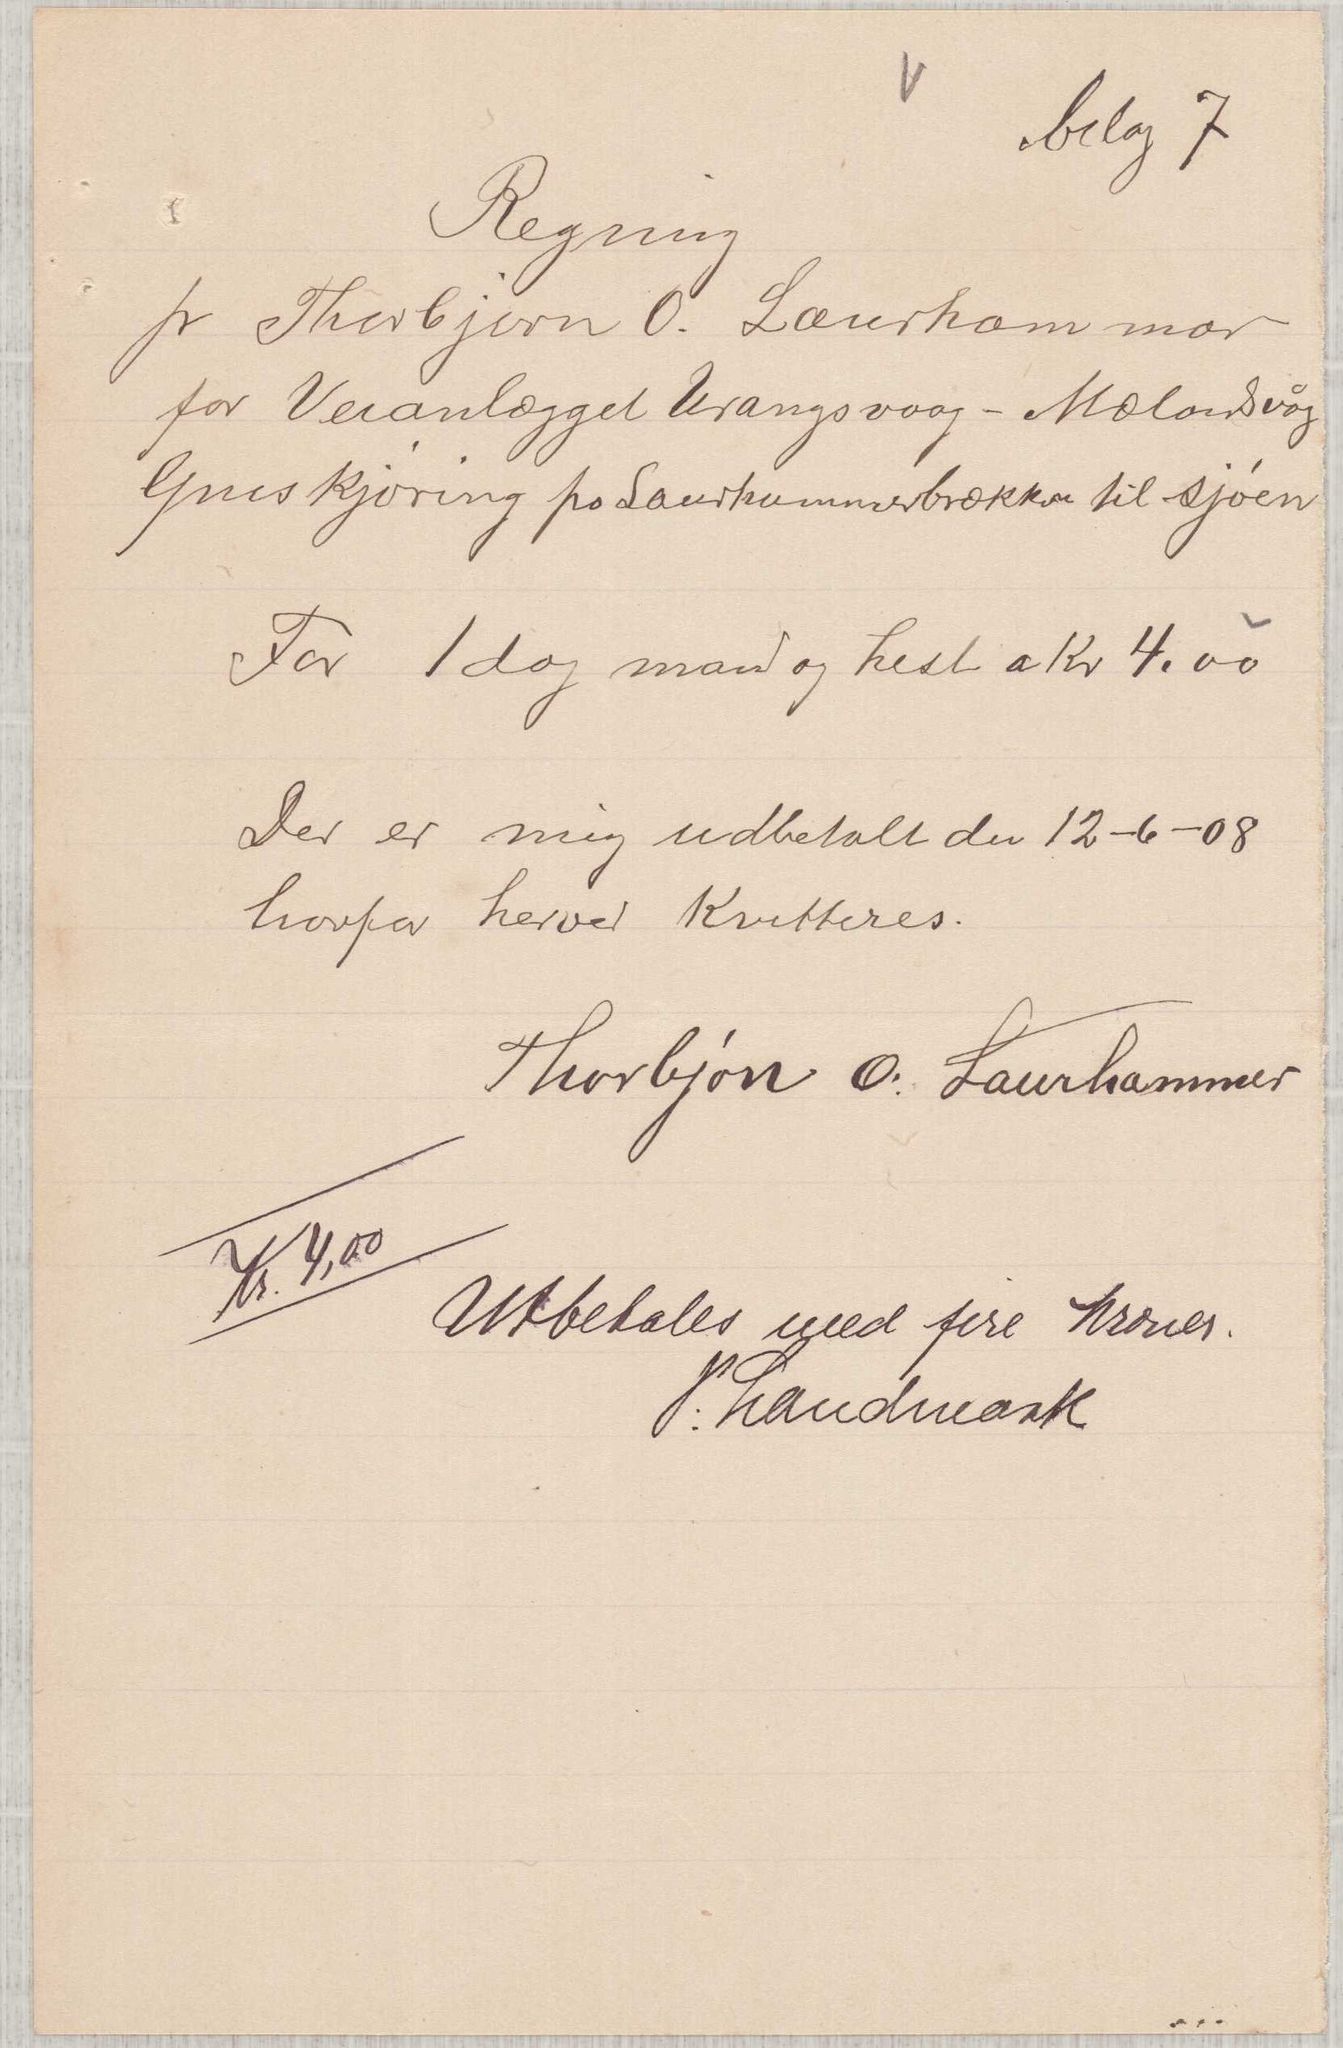 bilag 7
Regning
fr Thorbjørn O. Laurhammer
for Veianlægget Urangsvaag - Mælandsvåg
Gruskjøring på Laurhammerbrækken til sjøen
For 1 dag mand og hest a Kr 4.00
Der er mig udbetalt den 12-6-08
hvorfor herved Kvitteres.
Thorbjön O. Laurhammer
Kr. 4,00
Utbetales med fire kroner.
P. Landmark